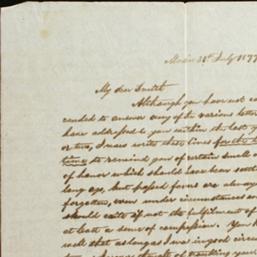 31st July 1877
My dear Smith
Although you have not
to answer any of the various letters
have addressed to you within the last
or two, I now write these lines for the
time to remind you of certain small
of honor which should have been
long ago, but passed favors are always
forgotten, even under circumstances
should exite if not the fulfilment of
at least a sense of compassion. You
well that as long as I was in good